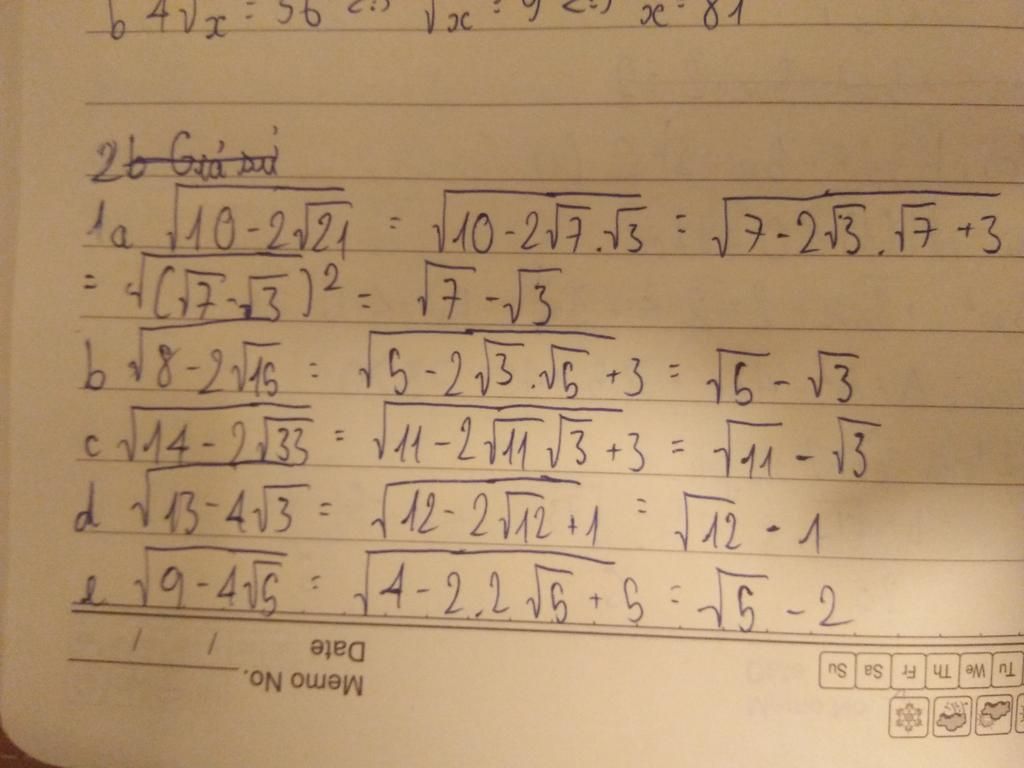 b 4√x = 36 <=> √x = 9 <=> x = 81
2b Giá trị
1a √(10-2√21) = √(10-2√7.√3) = √(7-2√3.√7+3)
= √((√7-√3)²) = √7-√3
b √(8-2√15) = √(5-2√3.√5+3) = √5-√3
c √(14-2√33) = √(11-2√11√3+3) = √11-√3
d √(13-4√3) = √(12-2√12+1) = √12-1
e √(9-4√5) = √(4-2.2√5+5) = √5-2
Date / /
Memo No.
Tu We Th Fr Sa Su